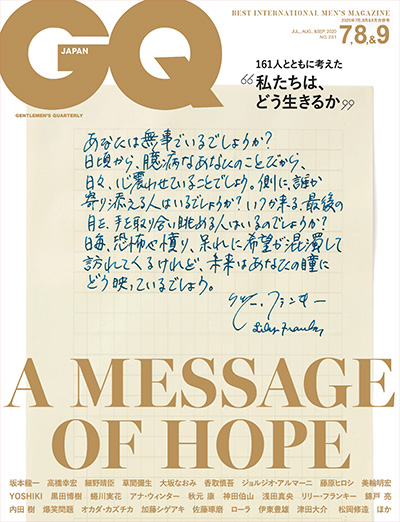 BEST INTERNATIONAL MEN'S MAGAZINE
GQ
JAPAN
GENTLEMEN'S QUARTERLY
2020年7月,8月&9月合併号
JUL., AUG., &SEP. 2020
7,8,&9
161人とともに考えた
“私たちは、
どう生きるか”
あなたは無事でいるでしょうか?
日頃から、臆病なあなたのことだから、
日々、心震わせていることでしょう。側に、誰か
寄り添える人はいるでしょうか? いつか来る、最後の
月を、手を取り合い眺める人はいるのでしょうか?
日毎、恐怖や憤り、呆れに希望が混濁して
訪れてくるけれど、未来はあなたの瞳に
どう映っているでしょう。
リリー・フランキー
Lily Franky
A MESSAGE
OF HOPE
坂本龍一 高橋幸宏 細野晴臣 草間彌生 大坂なおみ 香取慎吾 ジョルジオ・アルマーニ 藤原ヒロシ 美輪明宏
YOSHIKI 黒田博樹 蜷川実花 アナ・ウィンター 秋元 康 神田伯山 浅田真央 リリー・フランキー 錦戸 亮
内田 樹 爆笑問題 オカダ・カズチカ 加藤シゲアキ 佐藤琢磨 ローラ 伊東豊雄 津田大介 松岡修造 ほか